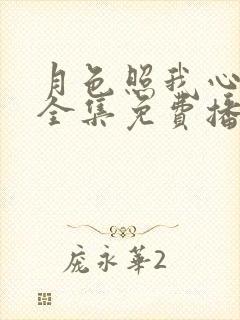 月色照我心
全集免费播
庞永华2